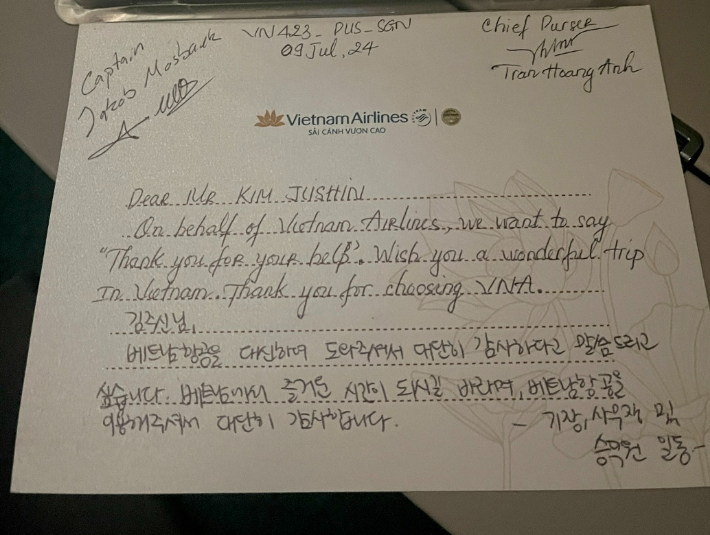 Captain
Jakob Mosbaek
VN423_PUS_SGN
09 Jul, 24
Chief Purser
Tran Hoang Anh
Vietnam Airlines
SẢI CÁNH VƯƠN CAO
Dear Mr KIM JUSHIN
On behalf of Vietnam Airlines, we want to say
"Thank you for your help". Wish you a wonderful trip
In Vietnam. Thank you for choosing VNA.
김주신님,
베트남항공을 대신하여 도와주셔서 대단히 감사하다고 말씀드리고
싶습니다. 베트남에서 즐거운 시간이 되시길 바라며, 베트남항공을
이용해주셔서 대단히 감사합니다.
- 기장, 사무장 및
승무원 일동-